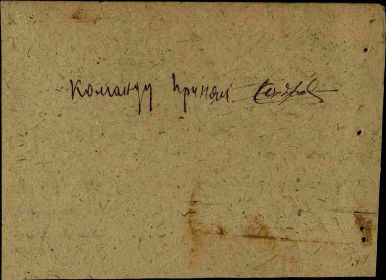 Команду принял